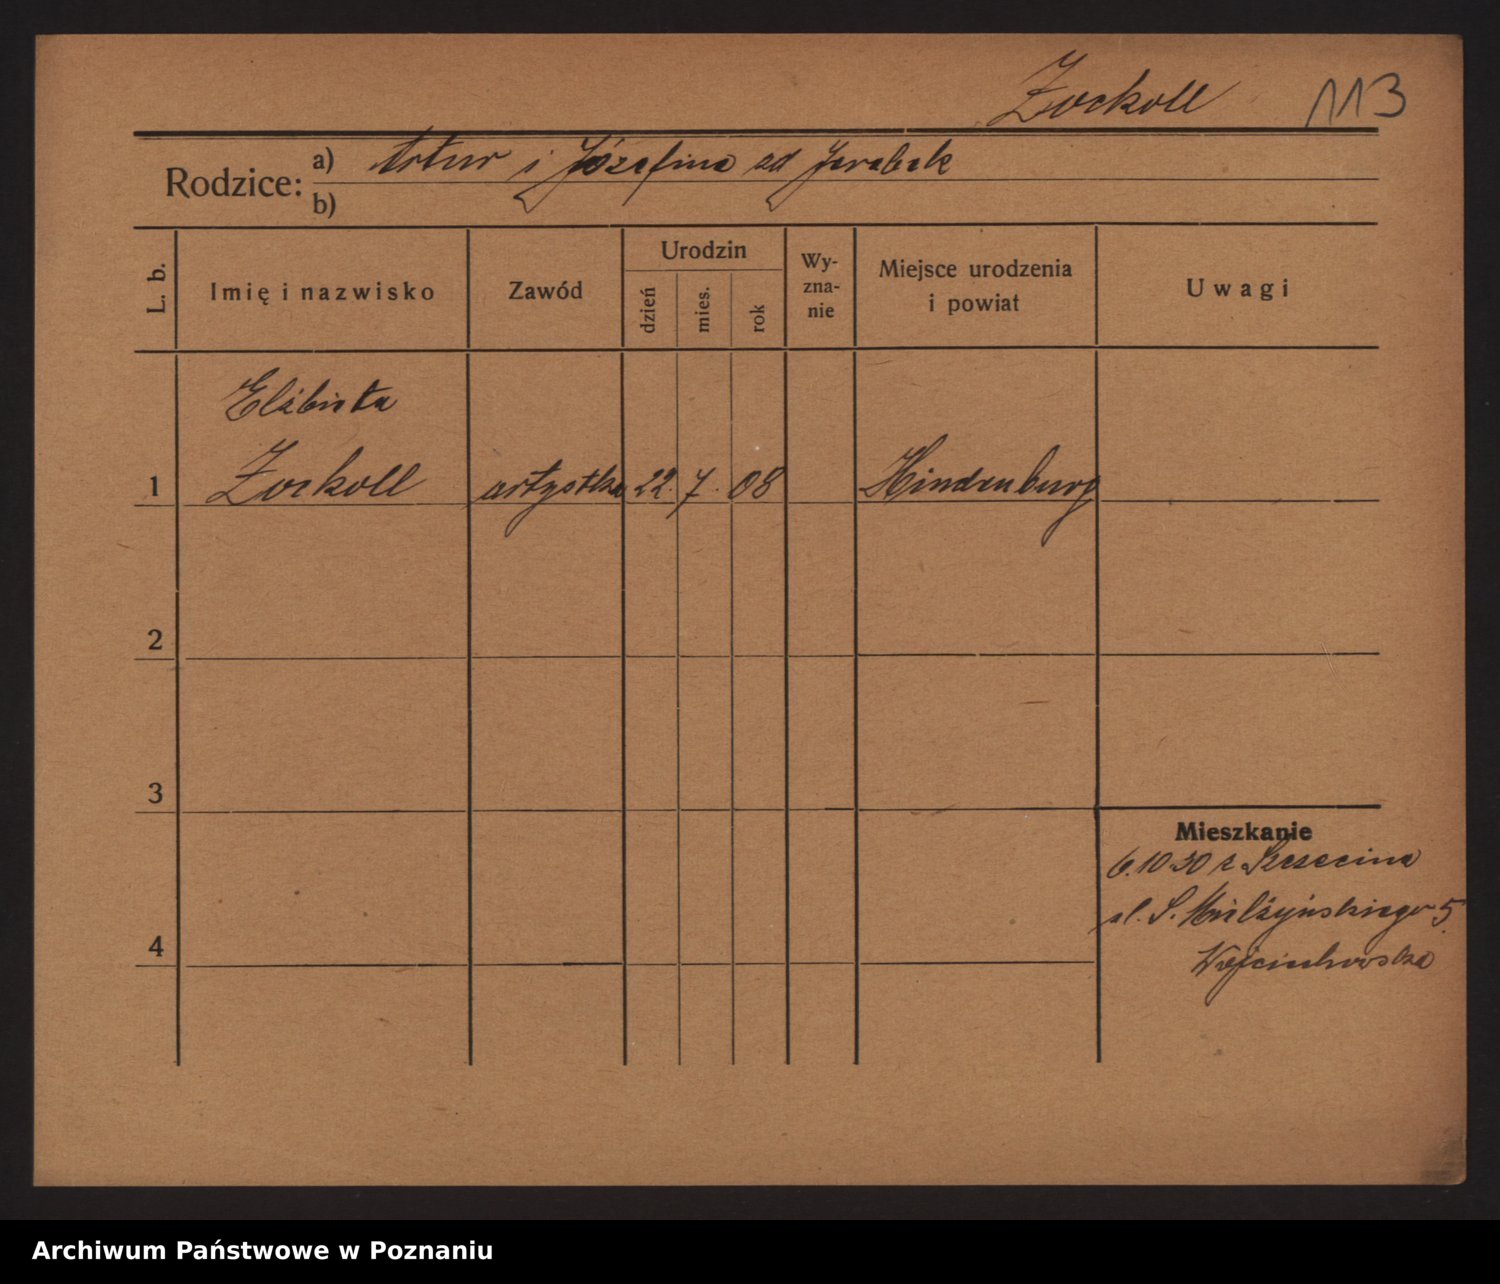 Zockoll 113
Rodzice: a) Artur i Józefina zd Jerabek
b)
L. b. Imię i nazwisko Zawód Urodzin dzień mies. rok Wyznanie Miejsce urodzenia i powiat Uwagi
Elżbieta
1 Zockoll artystka 22. 7. 08 Hindenburg
2
3
Mieszkanie
6.10 30 z Szczecina
ul. S. Mielżyńskiego 5.
4 Wojciechowska
Archiwum Państwowe w Poznaniu